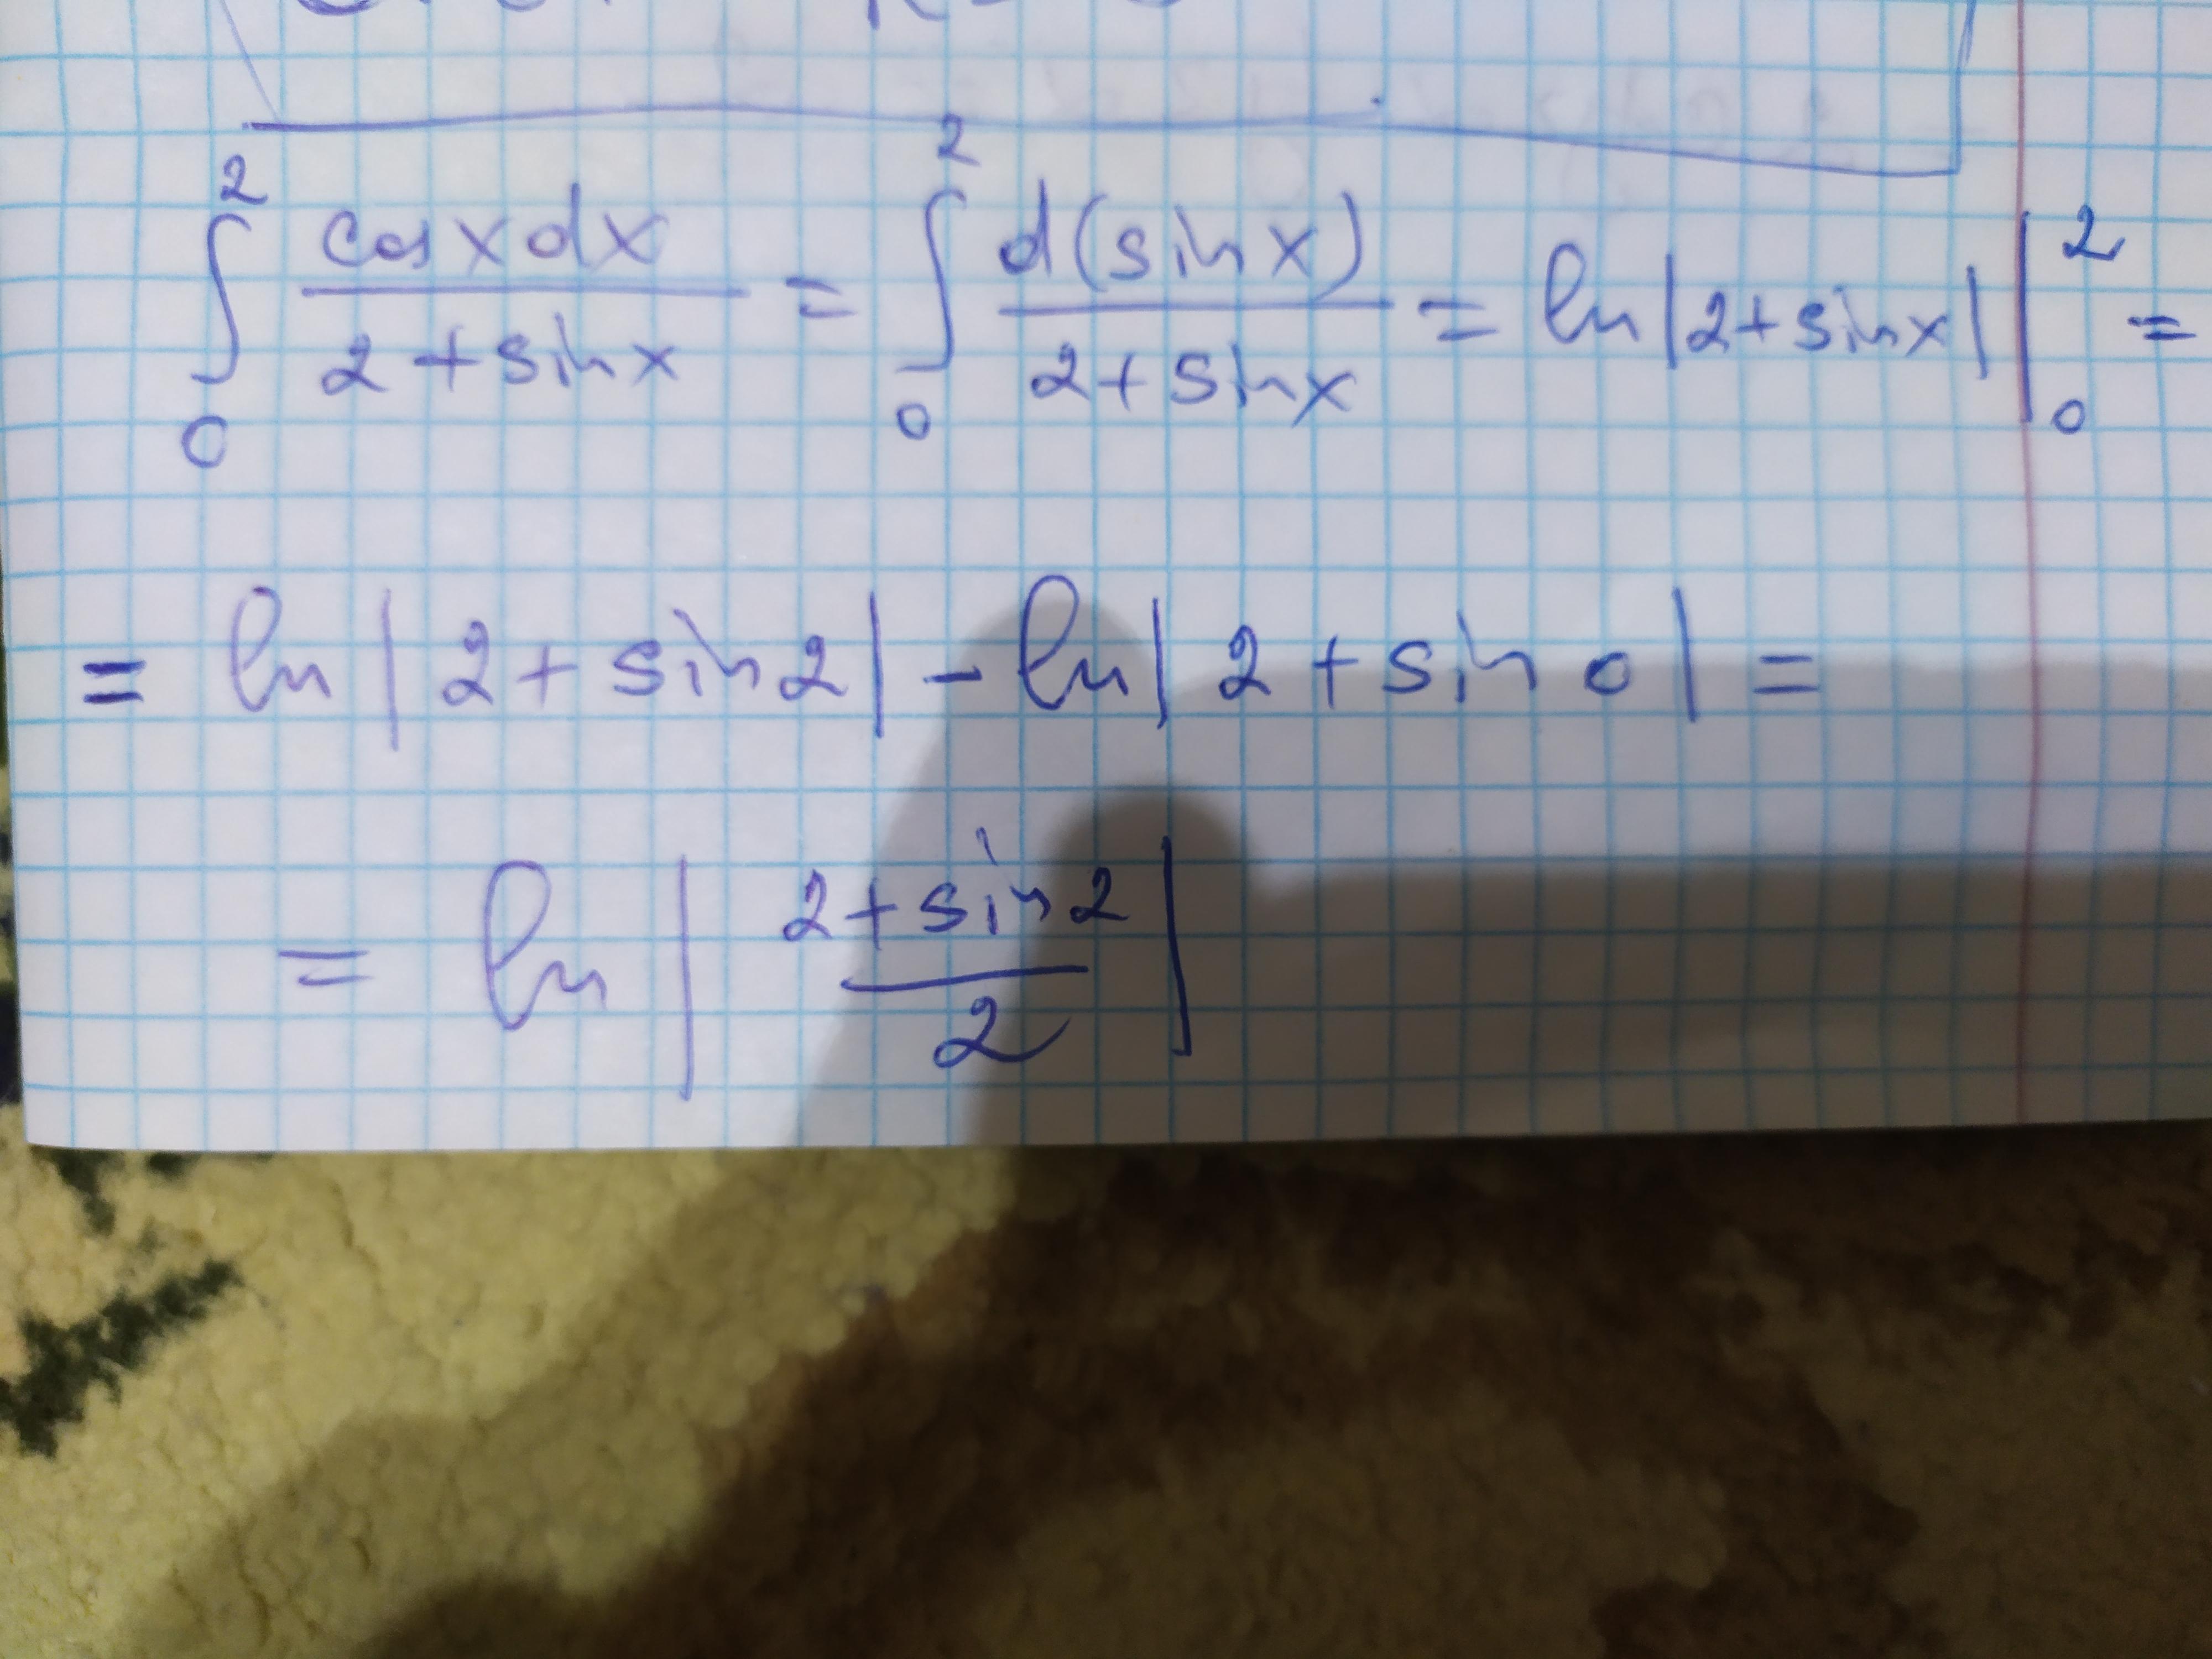 ∫₀² cos x dx / 2 + sin x = ∫₀² d(sin x) / 2 + sin x = ln|2 + sin x| |₀² =
= ln|2 + sin 2| - ln|2 + sin 0| =
= ln|2 + sin 2 / 2|